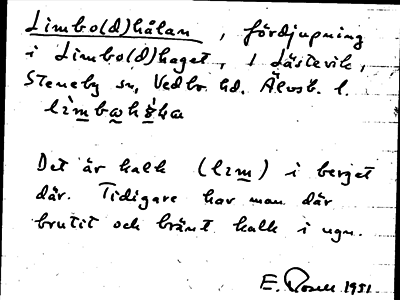 Limbo(d)hålan, fördjupning
i Limbo(d)haget, i Låstevik,
Steneby sn, Vedbo hd. Älvsb. l.
Det är kalk (lim) i berget
där. Tidigare har man där
brutit och bränt kalk i ugn.
E. 1951.